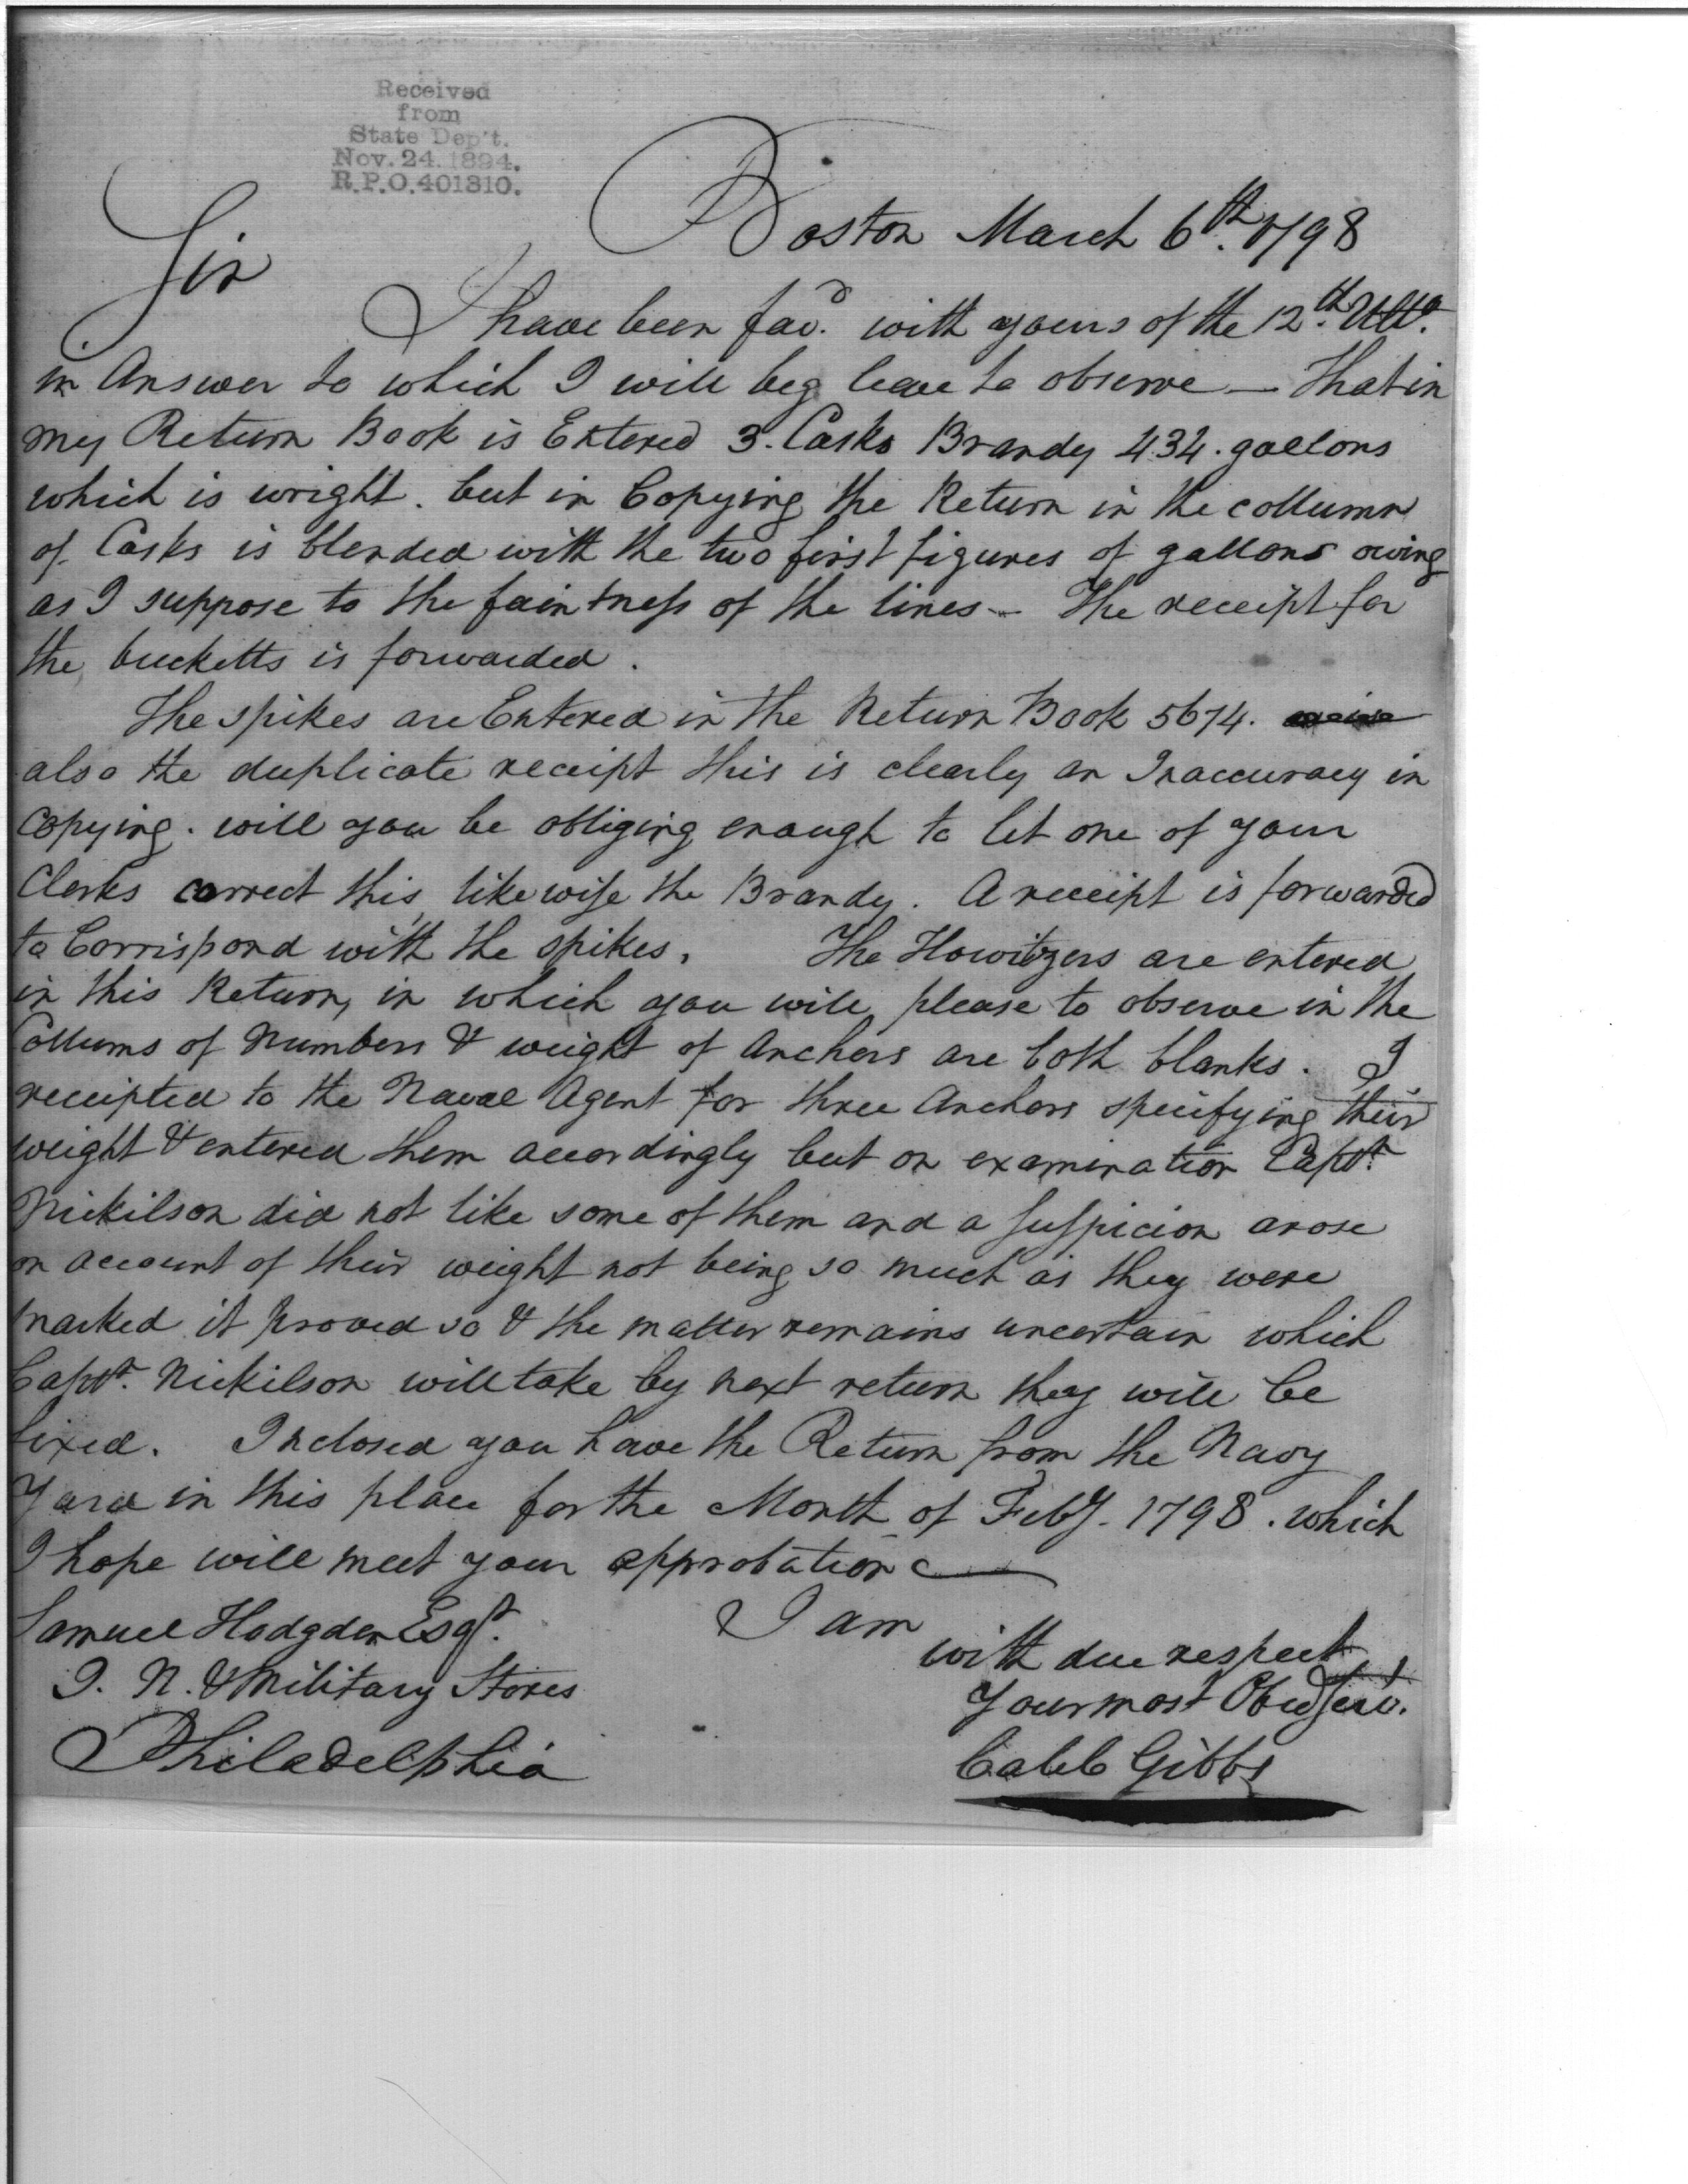 Received
from
State Dep't.
Nov. 24. 1894.
R.P.O. 401310.
Boston March 6th. 1798
Sir
I have been fav.d with yours of the 12th. Ulto.
in Answer to which I will beg leave to observe — that in
my Return Book is Entered 3. Casks Brandy 434. gallons
which is wright. but in Copying the Return in the collumn
of Casks is blended with the two first figures of gallons owing
as I suppose to the faintness of the lines — The receipt for
the bucketts is forwarded.
The spikes are Entered in the Return Book 5674.
also the duplicate receipt this is clearly an Inaccuracy in
Copying. will you be obliging enough to let one of your
Clerks correct this, likewise the Brandy. A receipt is forwarded
to Corrispond with the spikes. The Howitzers are entered
in this Return, in which you will please to observe in the
Collums of Numbers & weight of Anchors are both blanks. I
receipted to the Naval Agent for three Anchors specifying their
weight & entered them accordingly but on examination Captn.
Nickilson did not like some of them and a suspicion arose
on account of their weight not being so much as they were
marked it proved so & the matter remains uncertain which
Captn. Nickilson will take by next return they will be
fixed. Inclosed you have the Return from the Navy
Yard in this place for the Month of Feby. 1798. which
I hope will meet your approbation —
Samuel Hodgden Esqr.
I. N. & Military Stores
Philadelphia
I am
with due respect
Your most Obed Servt.
Caleb Gibbs